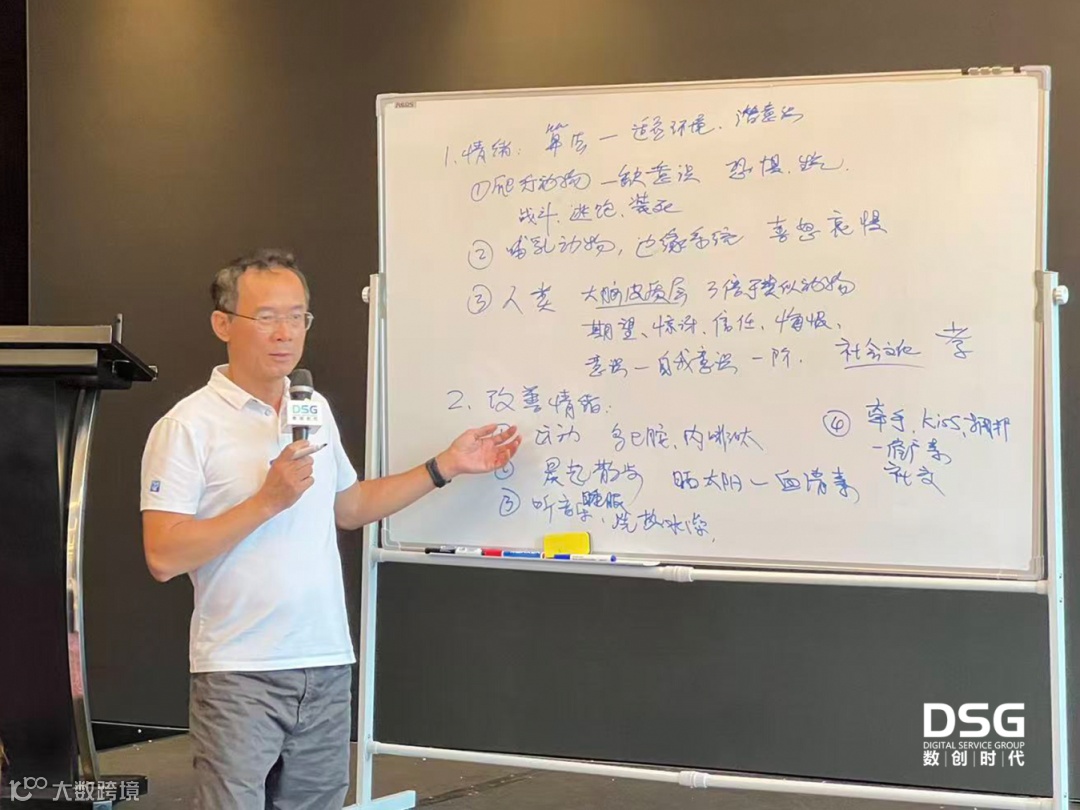 1. 情绪: 算法 — 适应环境、潜意识
① 爬行动物 — 缺意识 恐惧、
战斗、逃跑、装死
② 哺乳动物, 边缘系统 喜怒哀惧
③ 人类 大脑皮质层 3倍于类似动物
期望、惊讶、信任、悔恨、
意识 — 自我意识 一阶. 社会文化 孝
2. 改善情绪:
运动 多巴胺、内啡肽
② 晨起散步 晒太阳 — 血清素
③ 听音乐、睡眠、洗热水澡,
④ 牵手、kiss、拥抱
— 素
社交
DSG
数创时代
DSG
DIGITAL SERVICE GROUP
数|创|时|代
大数跨境